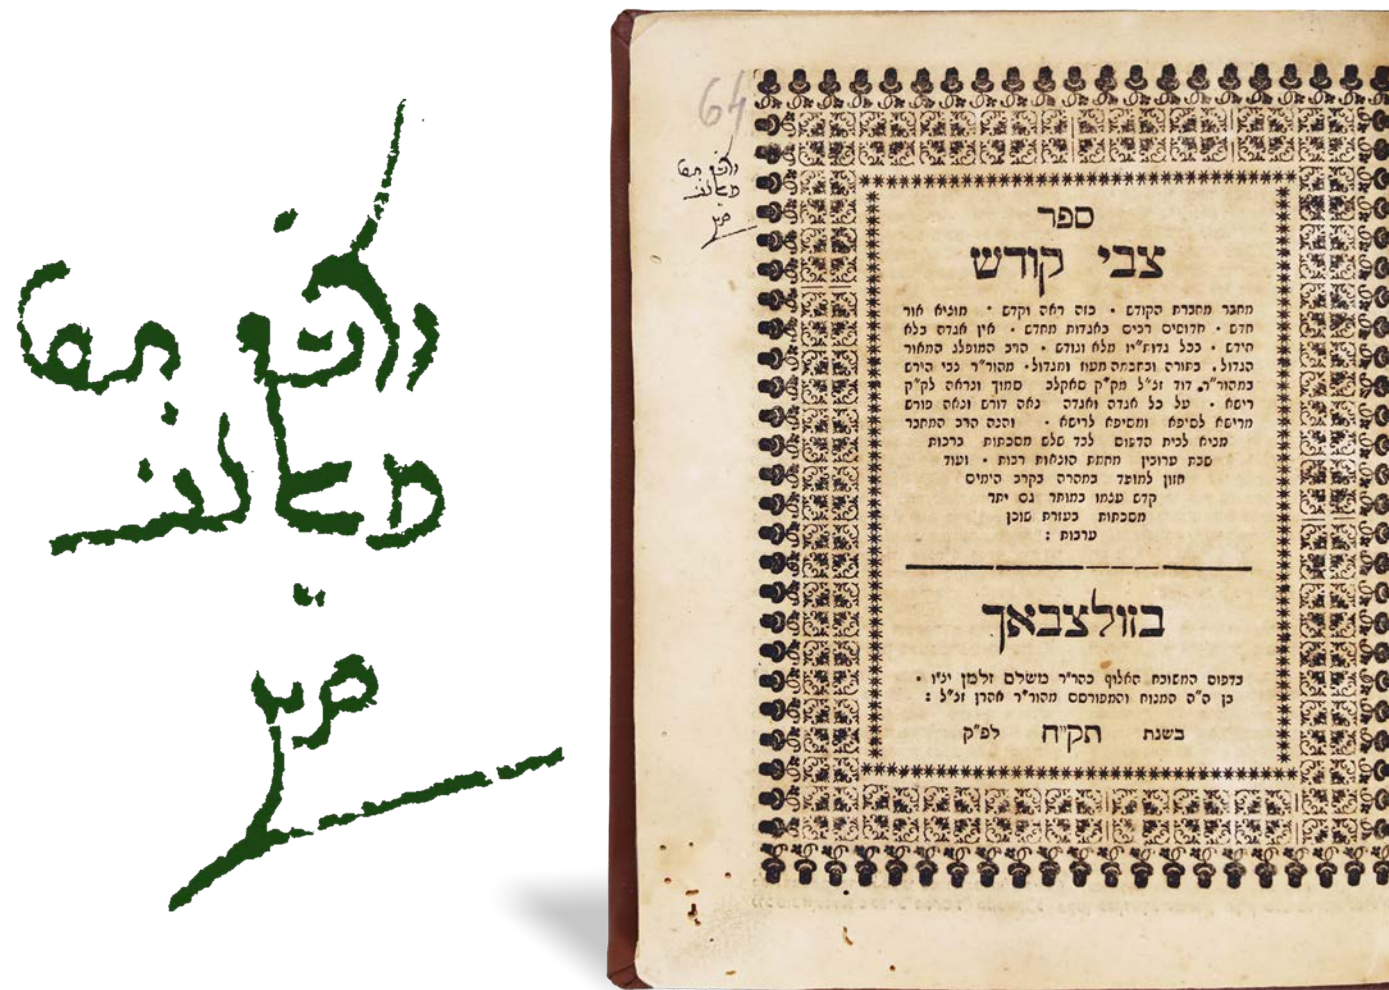 64
ספר
צבי קודש
מחבר מחברת הקודש · כזה ראה וקדש · מוציא אור
חדש · חדושים רבים באגדות מחדש · אין אגדה בלא
חידש · בכל גדות"יו מלא וגודש · הרב המופלג המאור
הגדול · בתורה ובחכמה מעוז ומגדול · מהור"ר צבי הירש
במהור"ר דוד זצ"ל מק"ק סאקלב סמוך ונראה לק"ק
רישא · על כל אגדה ואגדה נאה דורש ונאה פורש
מרישא לסיפא ומסיפא לרישא · והנה הרב המחבר
מביא לבית הדפוס לבד שלש מסכתות ברכות
שבת ערובין מחמת הוצאות רבות · ועוד
חזון למועד במהרה בקרב הימים
קדש עצמו במותר גם יתר
מסכתות בעזרת שוכן
ערבות :
בזולצבאך
בדפוס המשובח האלוף כהר"ר משלם זלמן יצ"ו ·
בן ה"ה המנוח והמפורסם מהור"ר אהרן זצ"ל :
בשנת תקי"ח לפ"ק